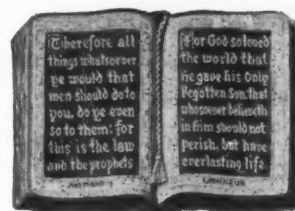 Therefore all
things whatsoever
ye would that
men should do to
you, do ye even
so to them: for
this is the law
and the prophets
For God so loved
the world that
he gave his Only
Begotten Son, that
whosoever believeth
in him should not
perish, but have
everlasting life